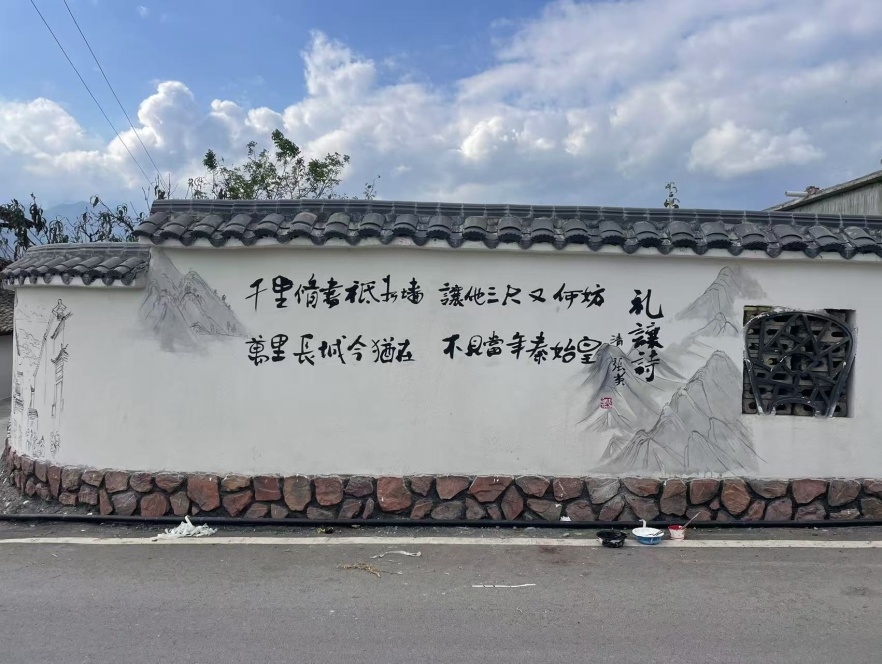 千里脩書祇为墙 讓他三尺又何妨
萬里長城今猶在 不見當年秦始皇
礼讓詩
清 張英